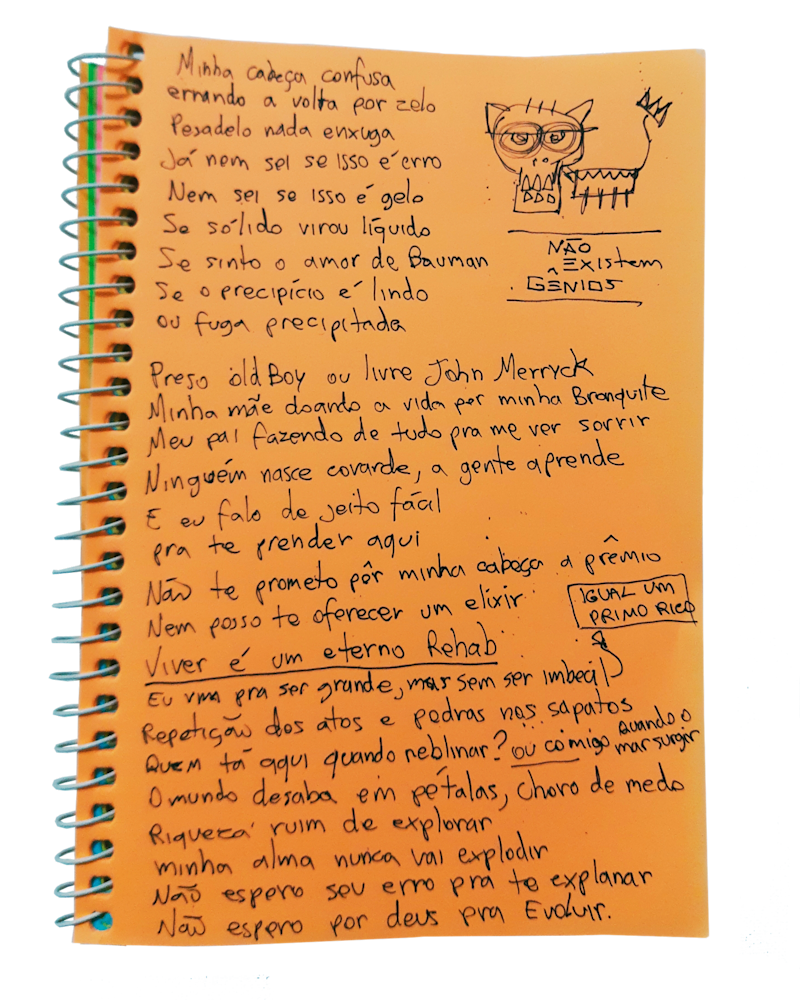 Minha cabeça confusa
errando a volta por zelo
Pesadelo nada enxuga
Já nem sei se isso é erro
Nem sei se isso é gelo
Se sólido virou líquido
Se sinto o amor de Bauman
Se o precipício é lindo
ou fuga precipitada
NÃO
EXISTEM
GÊNIOS
Preso old Boy ou livre John Merryck
Minha mãe doando a vida por minha Bronquite
Meu pai fazendo de tudo pra me ver sorrir
Ninguém nasce covarde, a gente aprende
E eu falo de jeito fácil
pra te prender aqui
Não te prometo pôr minha cabeça a prêmio
Nem posso te oferecer um elixir
IGUAL UM
PRIMO RICO
Viver é um eterno Rehab
Eu vim pra ser grande, mas sem ser imbecil
Repetição dos atos e pedras nos sapatos
Quem tá aqui quando neblinar? ou comigo quando o
mar surgir
O mundo desaba em pétalas, choro de medo
Riqueza ruim de explorar
minha alma nunca vai explodir
Não espero seu erro pra te explanar
Não espero por deus pra Evoluir.